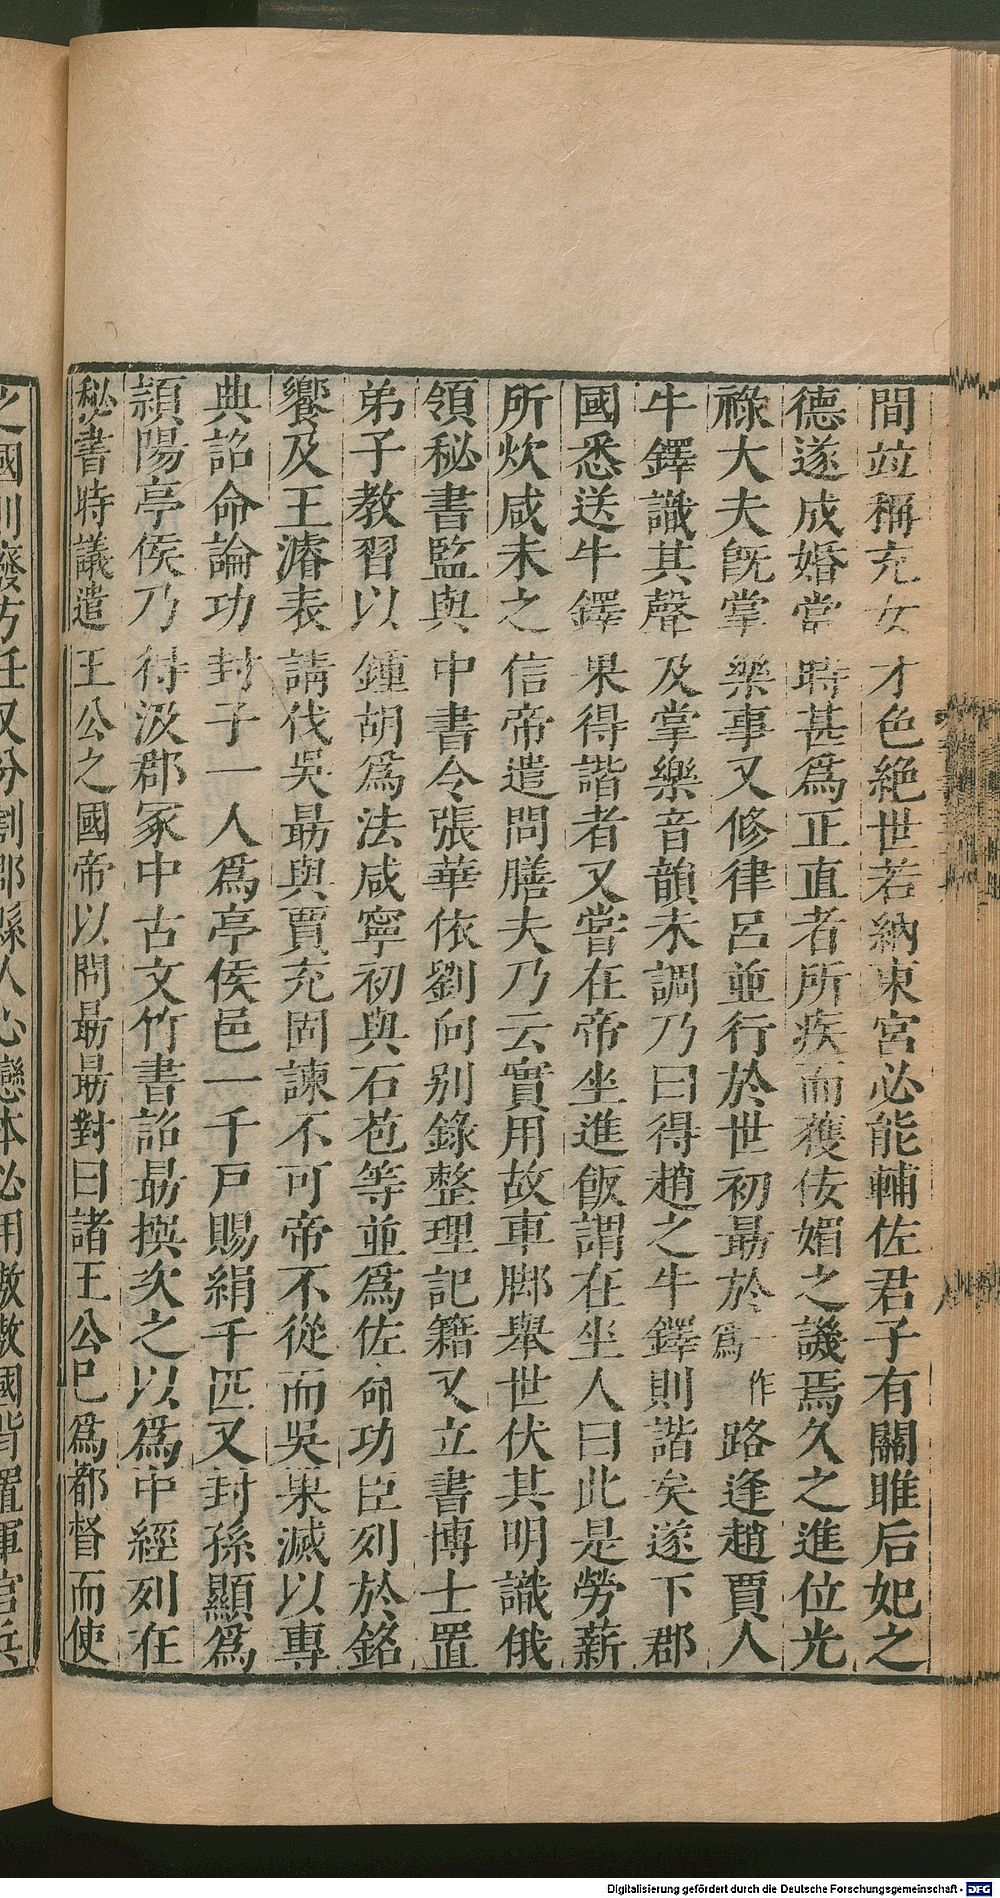 間竝稱充女才色絕世若納東宮必能輔佐君子有關雎后妃之
德遂成婚當時甚爲正直者所疾而獲佞媚之譏焉久之進位光
祿大夫旣掌樂事又修律呂並行於世初勗於一作爲路逢趙賈人
牛鐸識其聲及掌樂音韻未調乃曰得趙之牛鐸則諧矣遂下郡
國悉送牛鐸果得諧者又嘗在帝坐進飯謂在坐人曰此是勞薪
所炊咸未之信帝遣問膳夫乃云實用故車脚舉世伏其明識俄
領秘書監與中書令張華依劉向别錄整理記籍又立書博士置
弟子教習以鍾胡爲法咸寧初與石苞等並爲佐命功臣列於銘
饗及王濬表請伐吳勗與賈充固諫不可帝不從而吳果滅以專
典詔命論功封子一人爲亭侯邑一千戸賜絹千匹又封孫顯爲
頴陽亭侯乃得汲郡冢中古文竹書詔勗撰次之以爲中經列在
秘書時議遣王公之國帝以問勗勗對曰諸王公已爲都督而使
之國則廢方任又分割郡縣人心戀本必用嗷嗷國皆置軍官兵
Digitalisierung gefördert durch die Deutsche Forschungsgemeinschaft - DFG